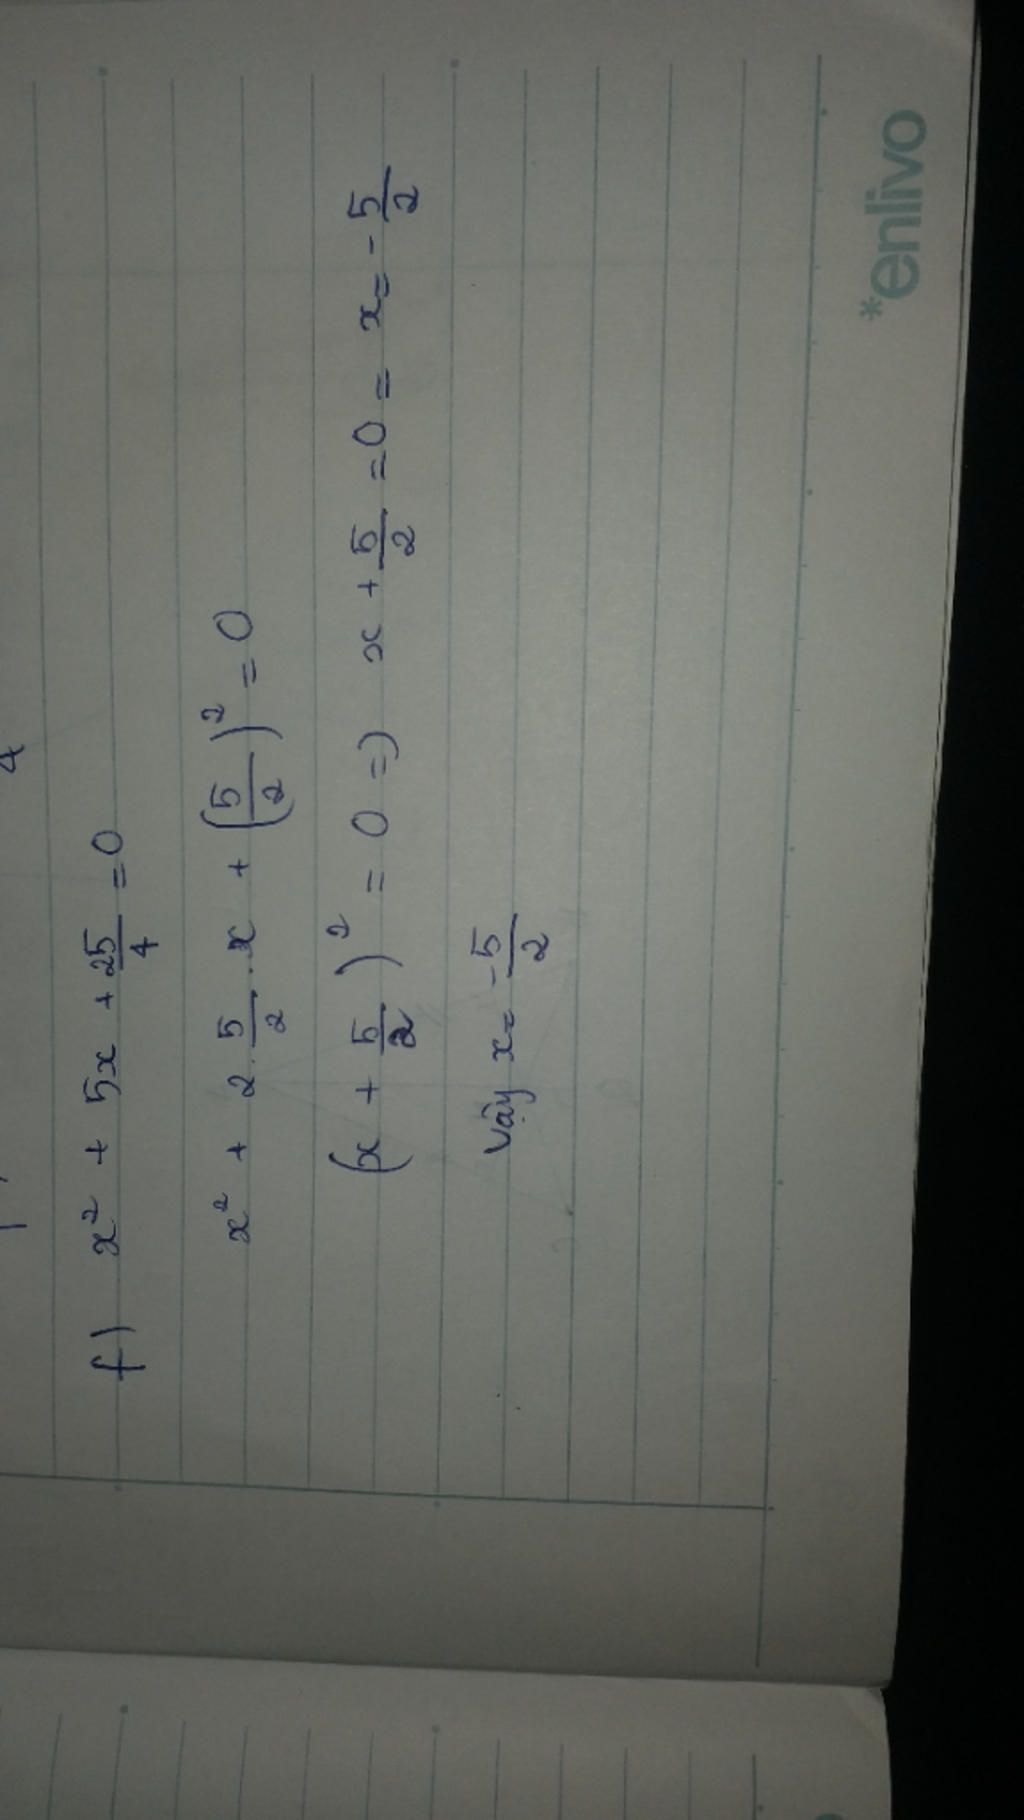 4
f) x² + 5x + 25/4 = 0
x² + 2 . 5/2 . x + (5/2)² = 0
(x + 5/2)² = 0 =) x + 5/2 = 0 = x = - 5/2
Vậy x = - 5/2
*enlivo